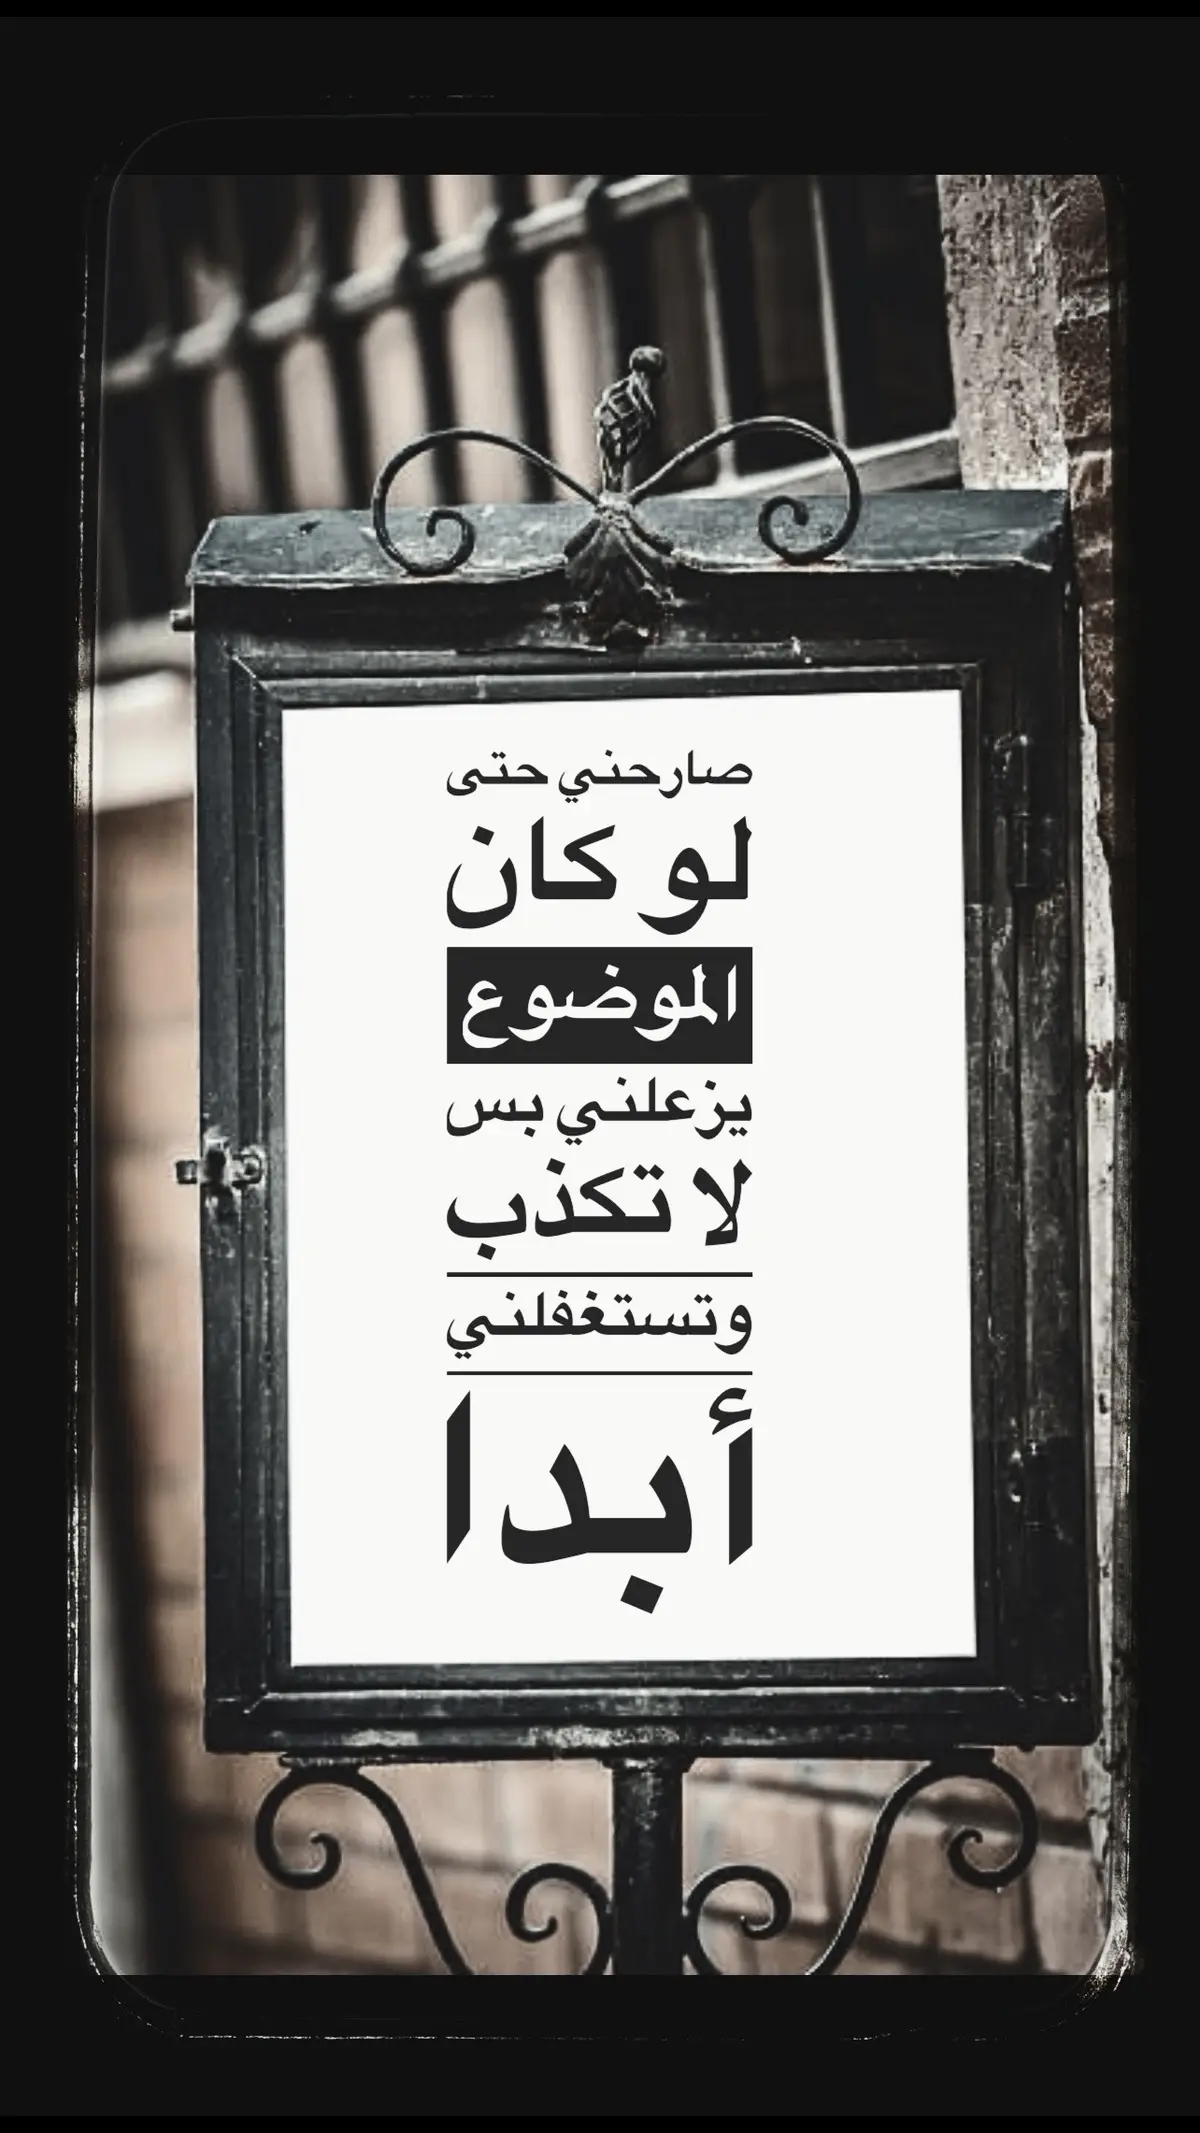 صارحني حتى
لو كان
الموضوع
يزعلني بس
لا تكذب
وتستغفلني
أبدا